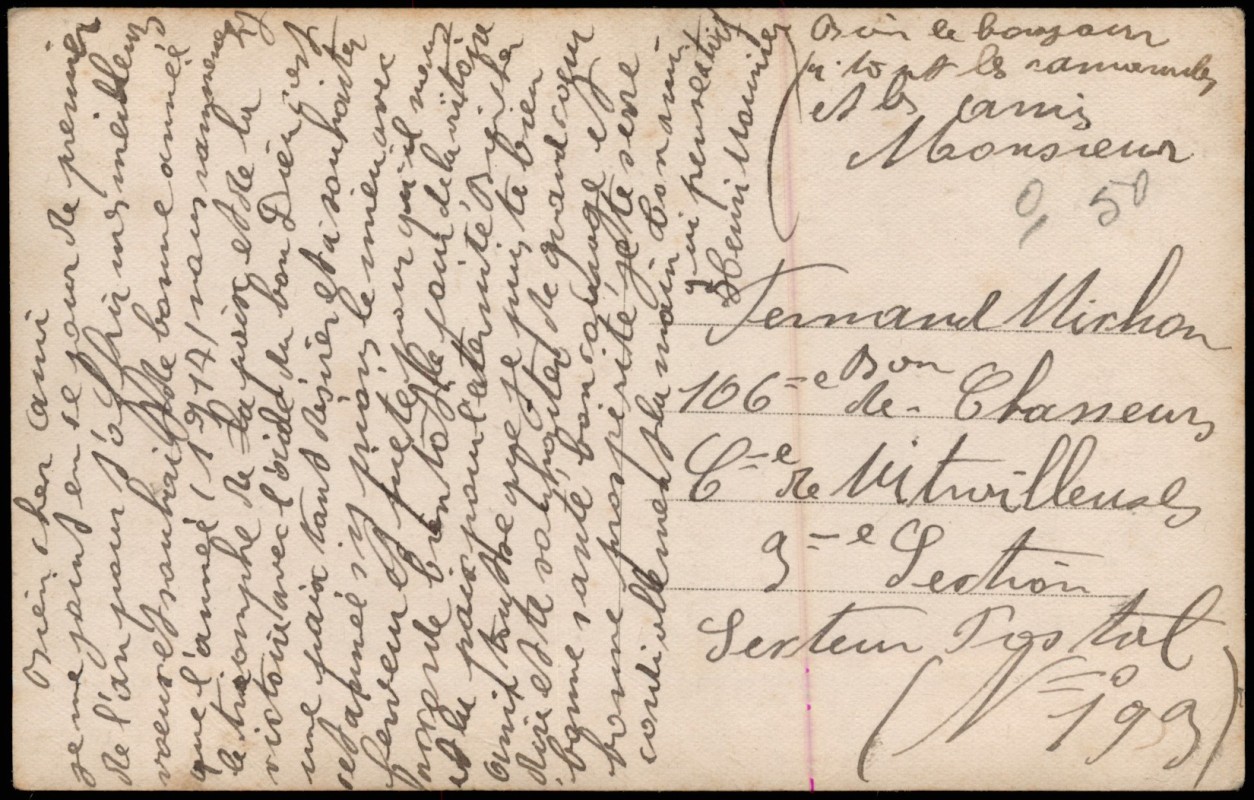 Bien cher ami
je me joint en se jour de premier
de l'an pour t'offrir mes meilleurs
voeux et souhaits de bonne année
que l'année (1917) nous ramène
le triomphe de la paix et de la
victoire avec l'aide du bon Dieu c'est
une paix tant désiré et si souhaiter
cet année si prions le
ferveur et piete pour qu'il nous
acorde bientôt le jour de la victoire
et la paix pour l'aternité Reçoit cher
amit tout se que je puis te bien
dire et te souhaiter de grand coeur
bonne santé bon courage et
bonne prospérité je te serre
cordiallement la main ton ami
qui pense à toi
Henri
Bien le bonjour
à tout les camarades
et les amis
Monsieur
0,50
Fernand Michon
106=e Bon de Chasseurs
C=ie de Mitrailleuses
3=e Section
Secteur Postal
(N=o 199)